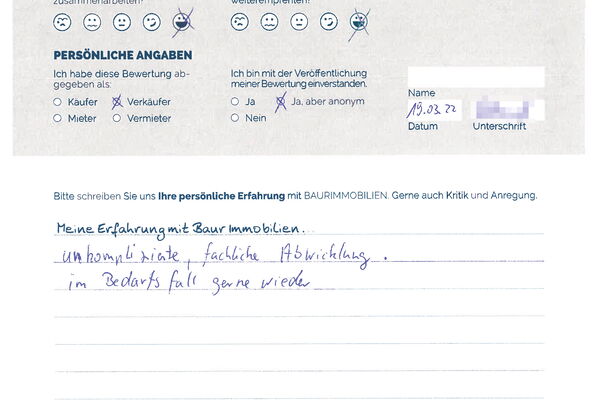 zusammenarbeiten?
weiterempfehlen?
PERSÖNLICHE ANGABEN
Ich habe diese Bewertung ab-
gegeben als:
Käufer Verkäufer
Mieter Vermieter
Ich bin mit der Veröffentlichung
meiner Bewertung einverstanden.
Ja Ja, aber anonym
Nein
Name
19.03.22
Datum Unterschrift
Bitte schreiben Sie uns Ihre persönliche Erfahrung mit BAURIMMOBILIEN. Gerne auch Kritik und Anregung.
Meine Erfahrung mit Baur Immobilien...
unkomplizierte, fachliche Abwicklung.
im Bedarfsfall gerne wieder